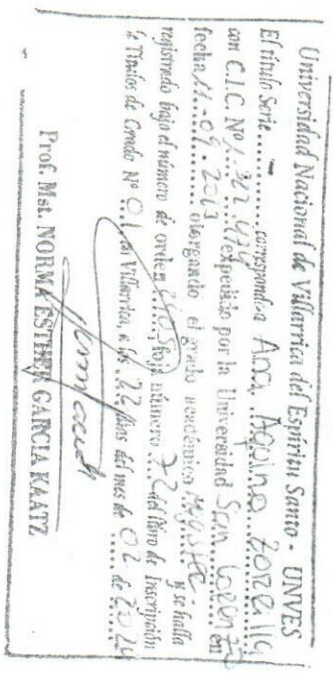 Universidad Nacional de Villarrica del Espíritu Santo - UNVES
El título Serie ........ corresponde a Ana Aquino Zorzilla
con C.I.C. Nº 1.322.474 expedido por la Universidad San Lorenzo en
fecha 11-09-2013 otorgando el grado académico Magister y se halla
registrado bajo el número de orden 1405 foja número 72 del libro de Inscripción
de Títulos de Grado Nº 01 en Villarrica, a los 22 días del mes de 02 de 2024
Prof. Mst. NORMA ESTHER GARCIA KAATZ